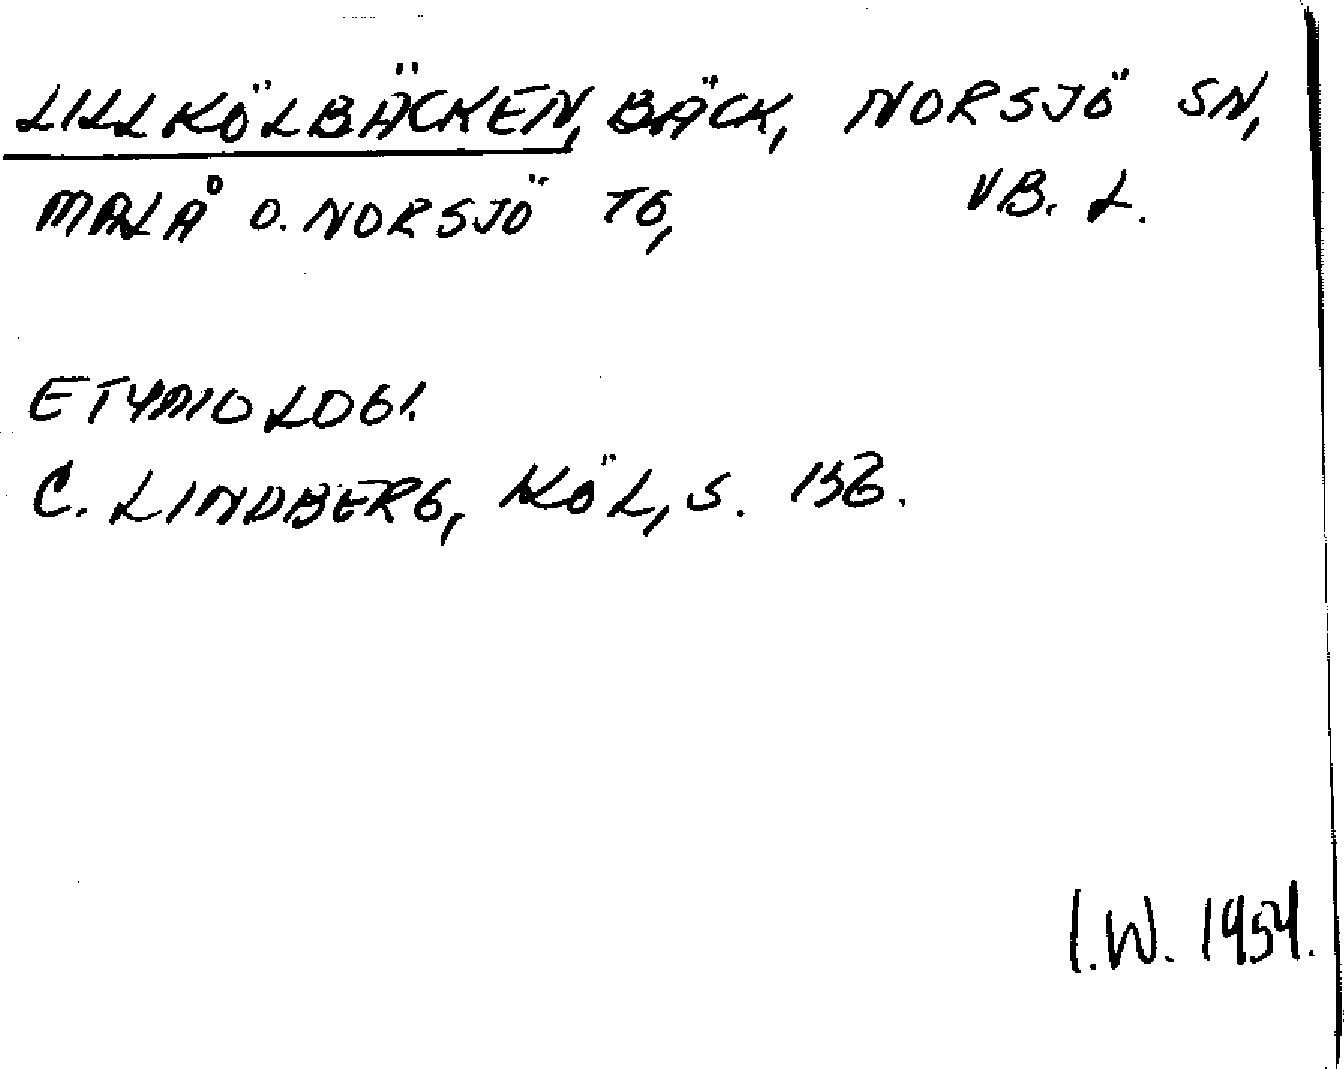 LILLKÖLBÄCKEN, BÄCK, NORSJÖ SN,
MALÅ O. NORSJÖ TG, VB. L.
ETYMOLOGI.
C. LINDBERG, KÖL, S. 136.
I.W. 1954.